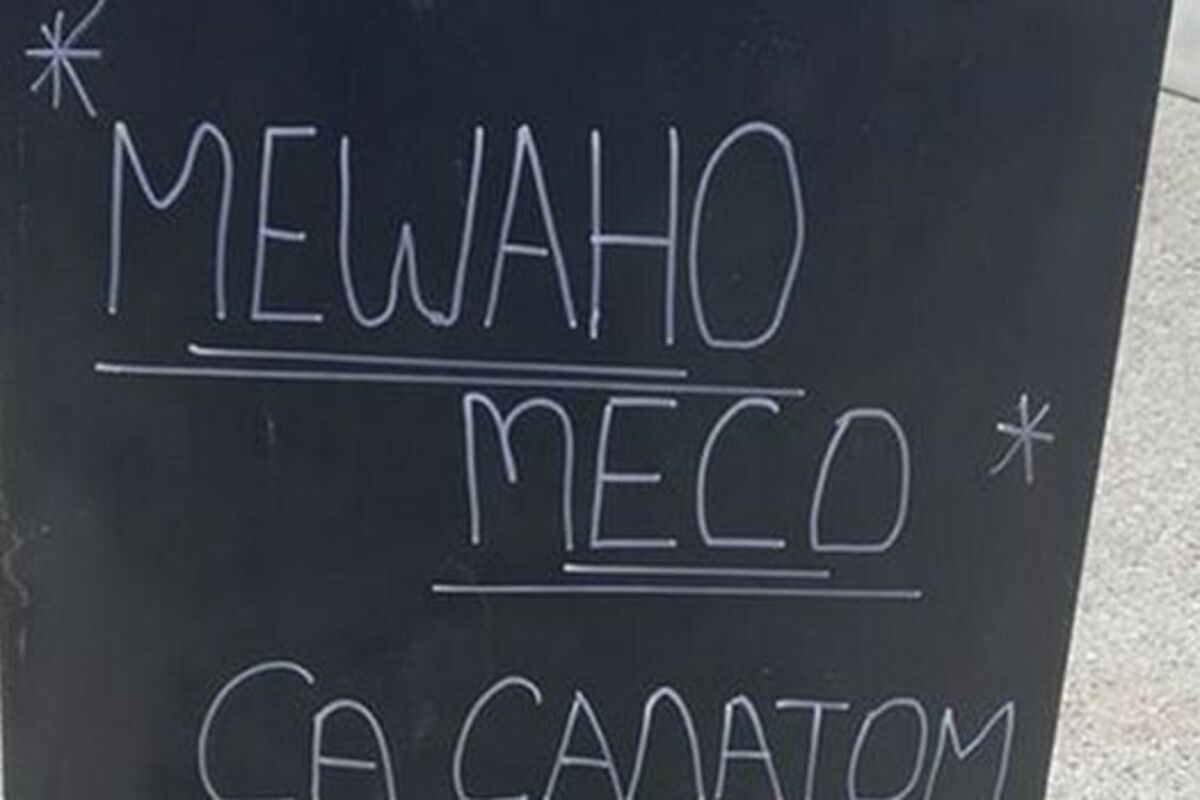 МЕШАНО
МЕСО
СА САЛАТОМ